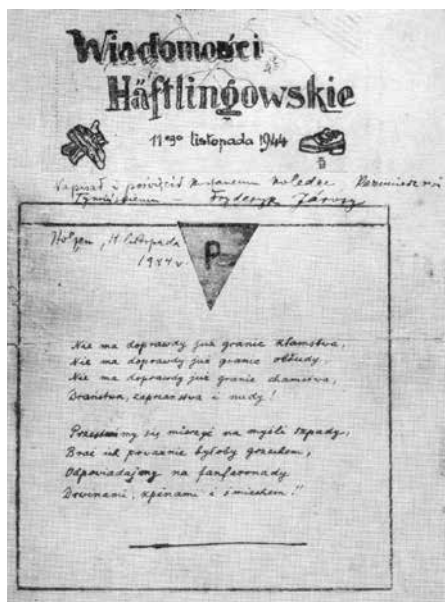 Wiadomości
Häftlingowskie
11ego listopada 1944
Napisał i poświęcił koledze,
Fryderyk Járosy
Holzen, 11 listopada
1944 r.
P
Nie ma doprawdy już granic kłamstwa,
Nie ma doprawdy już granic obłudy,
Nie ma doprawdy już granic chamstwa,
Draństwa, i nudy!
Przestańmy się mierzyć na myśli szpady,
Brać ich poważnie byłoby grzechem,
Odpowiadajmy na fanfaronady
Drwinami, kpinami i śmiechem!"